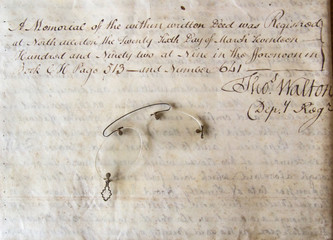 A Memorial of the within written Deed was Registred
at Northallerton the Twenty Sixth Day of March Seventeen
Hundred and Ninety two at Nine in the Forenoon in
Book C H Page 313 — and Number 641
Thos. Walton
Depy. Regr